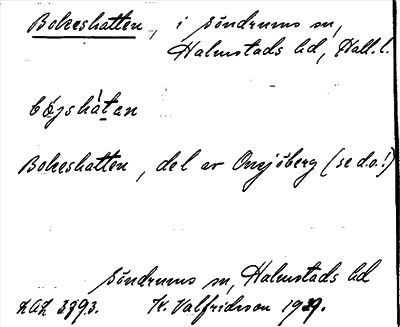 Bokeshatten, i Söndrums sn,
Halmstads hd, Hall. l.
Bokeshatten, del av (se do!)
Söndrums sn, Halmstads hd
K. Valfridsson 1939.